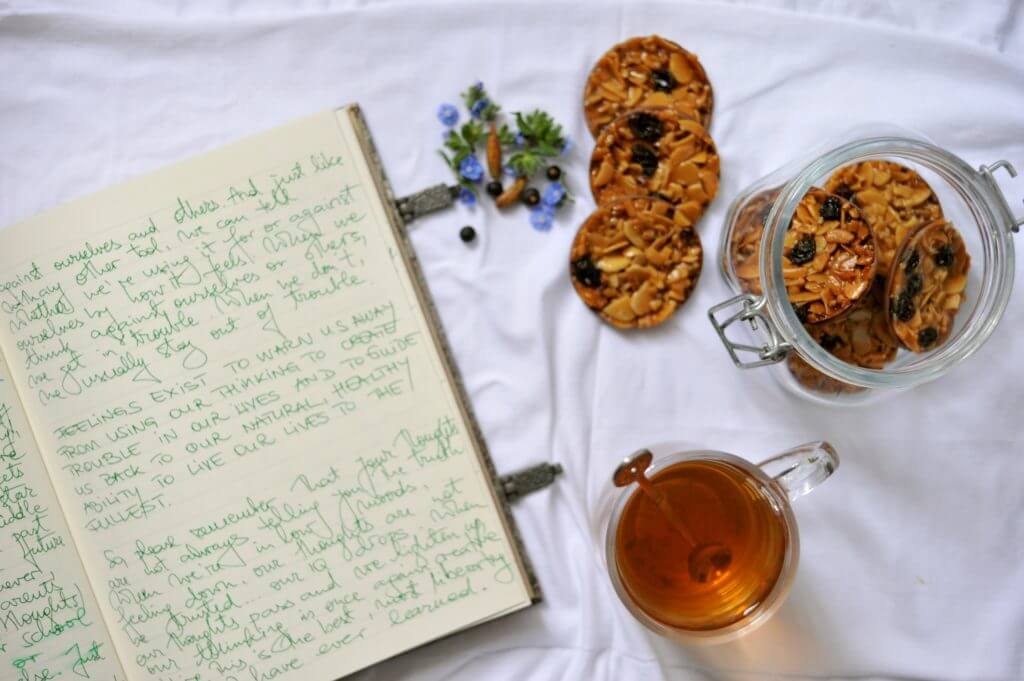 past
future
thoughts
school
or
else. Just
against ourselves and others. And just like
with any other tool, we can tell
whether we're using it for or against
ourselves by how it feels. When we
think against ourselves or others,
we get in trouble. When we don't,
we usually stay out of trouble.
FEELINGS EXIST TO WARN US AWAY
FROM USING OUR THINKING TO CREATE
TROUBLE IN OUR LIVES AND TO GUIDE
US BACK TO OUR NATURAL, HEALTHY
ABILITY TO LIVE OUR LIVES TO THE
FULLEST.
So please remember that your thoughts
are not always telling you the truth
When we're in low moods,
feeling down, our thoughts are not
be trusted... our IQ drops. When
our thoughts pass and we lighten up
our thinking is once again creative
this is the best, most liberating
I have ever learned.